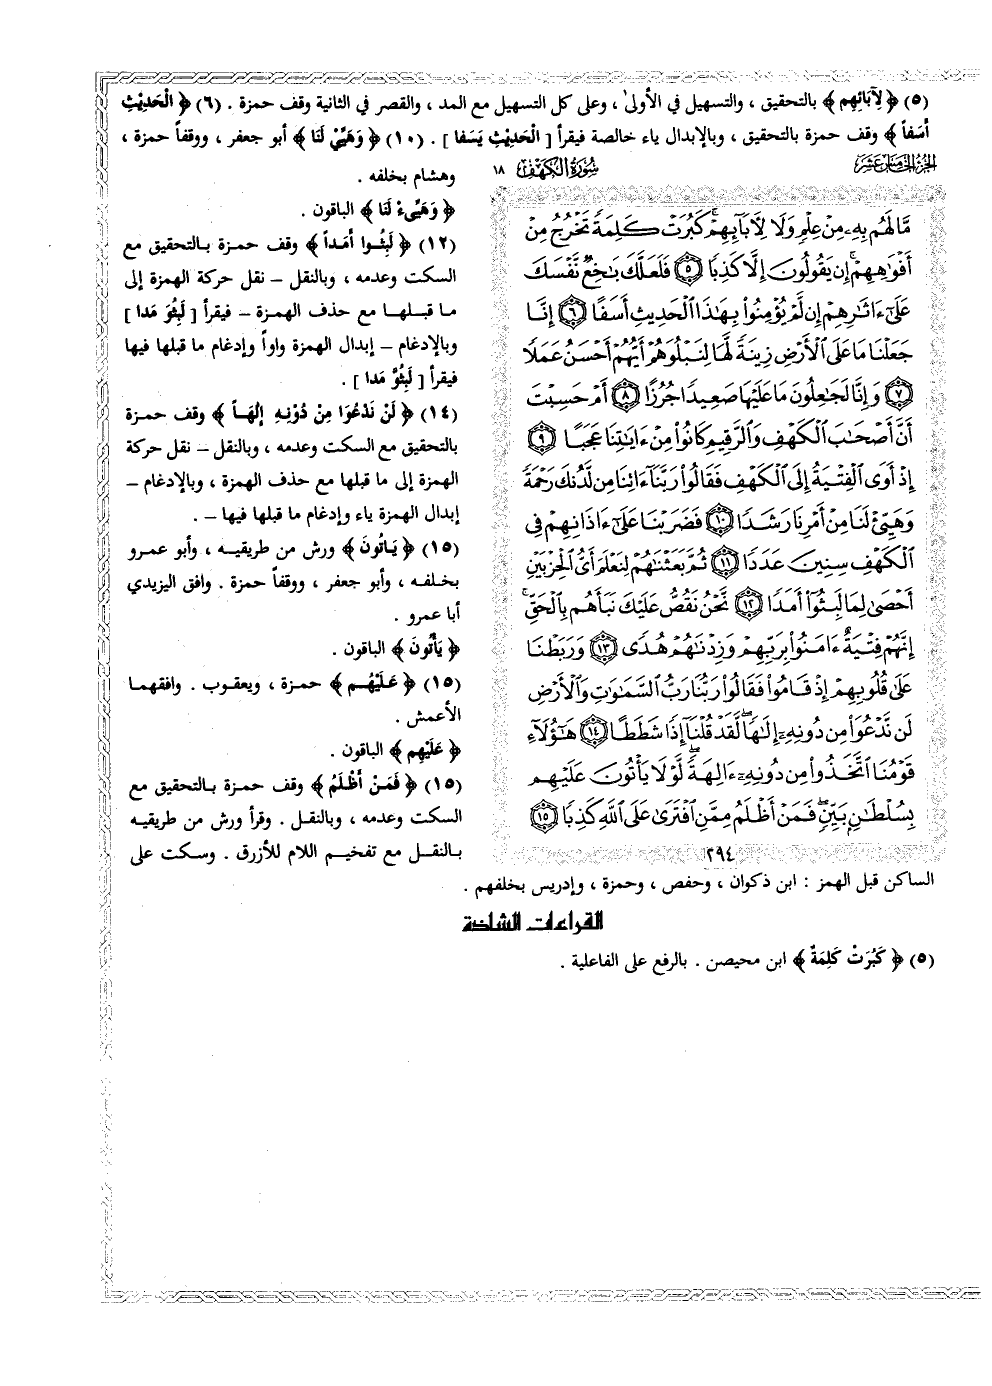 (٥) ﴿ لِآبَائِهِم ﴾ بالتحقيق ، والتسهيل في الأولىٰ ، وعلى كل التسهيل مع المد ، والقصر في الثانية وقف حمزة . (٦) ﴿ الْحَدِيْثِ
أَسَفاً ﴾ وقف حمزة بالتحقيق ، وبالإبدال ياء خالصة فيقرأ [ الْحَدِيْثِ يَسَفا ] . (١٠) ﴿ وَهَيِّيْ لَنَا ﴾ أبو جعفر ، ووقفاً حمزة ،
الجزء الخامس عشر
سُورَةُ الكَهْفِ ١٨
وهشام بخلفه .
﴿ وَهَيِّىءْ لَنَا ﴾ الباقون .
(١٢) ﴿ لَبِثُوا أَمَداً ﴾ وقف حمزة بالتحقيق مع
السكت وعدمه ، وبالنقل – نقل حركة الهمزة إلى
ما قبلها مع حذف الهمزة – فيقرأ [ لَبِثُوَ مَدا ]
وبالإدغام – إبدال الهمزة واواً وإدغام ما قبلها فيها
فيقرأ [ لَبِثُوَّ مَدا ] .
(١٤) ﴿ لَنْ نَدْعُوَا مِنْ دُوْنِهِ إِلَهَاً ﴾ وقف حمزة
بالتحقيق مع السكت وعدمه ، وبالنقل – نقل حركة
الهمزة إلى ما قبلها مع حذف الهمزة ، وبالإدغام –
إبدال الهمزة ياء وإدغام ما قبلها فيها – .
(١٥) ﴿ يَاتُونَ ﴾ ورش من طريقيه ، وأبو عمرو
بخلفه ، وأبو جعفر ، ووقفاً حمزة . وافق اليزيدي
أبا عمرو .
﴿ يَأْتُونَ ﴾ الباقون .
(١٥) ﴿ عَلَيْهُم ﴾ حمزة ، ويعقوب . وافقهما
الأعمش .
﴿ عَلَيْهِم ﴾ الباقون .
(١٥) ﴿ فَمَنْ أَظْلَمُ ﴾ وقف حمزة بالتحقيق مع
السكت وعدمه ، وبالنقل . وقرأ ورش من طريقيه
بالنقل مع تفخيم اللام للأزرق . وسكت على
مَّا لَهُم بِهِۦ مِنْ عِلْمٍ وَلَا لِأٓبَآئِهِمْ ۚ كَبُرَتْ كَلِمَةً تَخْرُجُ مِنْ
أَفْوَٰهِهِمْ ۚ إِن يَقُولُونَ إِلَّا كَذِبًا ٥ فَلَعَلَّكَ بَٰخِعٌ نَّفْسَكَ
عَلَىٰٓ ءَاثَٰرِهِمْ إِن لَّمْ يُؤْمِنُوا۟ بِهَٰذَا ٱلْحَدِيثِ أَسَفًا ٦ إِنَّا
جَعَلْنَا مَا عَلَى ٱلْأَرْضِ زِينَةً لَّهَا لِنَبْلُوَهُمْ أَيُّهُمْ أَحْسَنُ عَمَلًا
٧ وَإِنَّا لَجَٰعِلُونَ مَا عَلَيْهَا صَعِيدًا جُرُزًا ٨ أَمْ حَسِبْتَ
أَنَّ أَصْحَٰبَ ٱلْكَهْفِ وَٱلرَّقِيمِ كَانُوا۟ مِنْ ءَايَٰتِنَا عَجَبًا ٩
إِذْ أَوَى ٱلْفِتْيَةُ إِلَى ٱلْكَهْفِ فَقَالُوا۟ رَبَّنَآ ءَاتِنَا مِن لَّدُنكَ رَحْمَةً
وَهَيِّئْ لَنَا مِنْ أَمْرِنَا رَشَدًا ١٠ فَضَرَبْنَا عَلَىٰٓ ءَاذَانِهِمْ فِى
ٱلْكَهْفِ سِنِينَ عَدَدًا ١١ ثُمَّ بَعَثْنَٰهُمْ لِنَعْلَمَ أَىُّ ٱلْحِزْبَيْنِ
أَحْصَىٰ لِمَا لَبِثُوٓا۟ أَمَدًا ١٢ نَّحْنُ نَقُصُّ عَلَيْكَ نَبَأَهُم بِٱلْحَقِّ ۚ
إِنَّهُمْ فِتْيَةٌ ءَامَنُوا۟ بِرَبِّهِمْ وَزِدْنَٰهُمْ هُدًى ١٣ وَرَبَطْنَا
عَلَىٰ قُلُوبِهِمْ إِذْ قَامُوا۟ فَقَالُوا۟ رَبُّنَا رَبُّ ٱلسَّمَٰوَٰتِ وَٱلْأَرْضِ
لَن نَّدْعُوَا۟ مِن دُونِهِۦٓ إِلَٰهًا ۖ لَّقَدْ قُلْنَآ إِذًا شَطَطًا ١٤ هَٰٓؤُلَآءِ
قَوْمُنَا ٱتَّخَذُوا۟ مِن دُونِهِۦٓ ءَالِهَةً ۖ لَّوْلَا يَأْتُونَ عَلَيْهِم
بِسُلْطَٰنٍۭ بَيِّنٍ ۖ فَمَنْ أَظْلَمُ مِمَّنِ ٱفْتَرَىٰ عَلَى ٱللَّهِ كَذِبًا ١٥
٢٩٤
الساكن قبل الهمز : ابن ذكوان ، وحفص ، وحمزة ، وإدريس بخلفهم .
القراءات الشاذة
(٥) ﴿ كَبُرَتْ كَلِمَةٌ ﴾ ابن محيصن . بالرفع على الفاعلية .